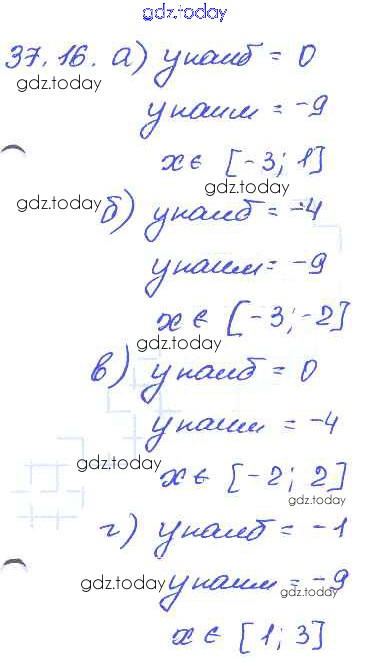 gdz.today
37.16. а) yнаиб = 0
gdz.today
yнаим = -9
x ∈ [-3; 1]
gdz.today
gdz.today б) yнаиб = -4
yнаим = -9
x ∈ [-3; -2]
gdz.today
в) yнаиб = 0
yнаим = -4
gdz.today
x ∈ [-2; 2]
gdz.today
г) yнаиб = -1
gdz.today yнаим = -9
gdz.today
x ∈ [1; 3]